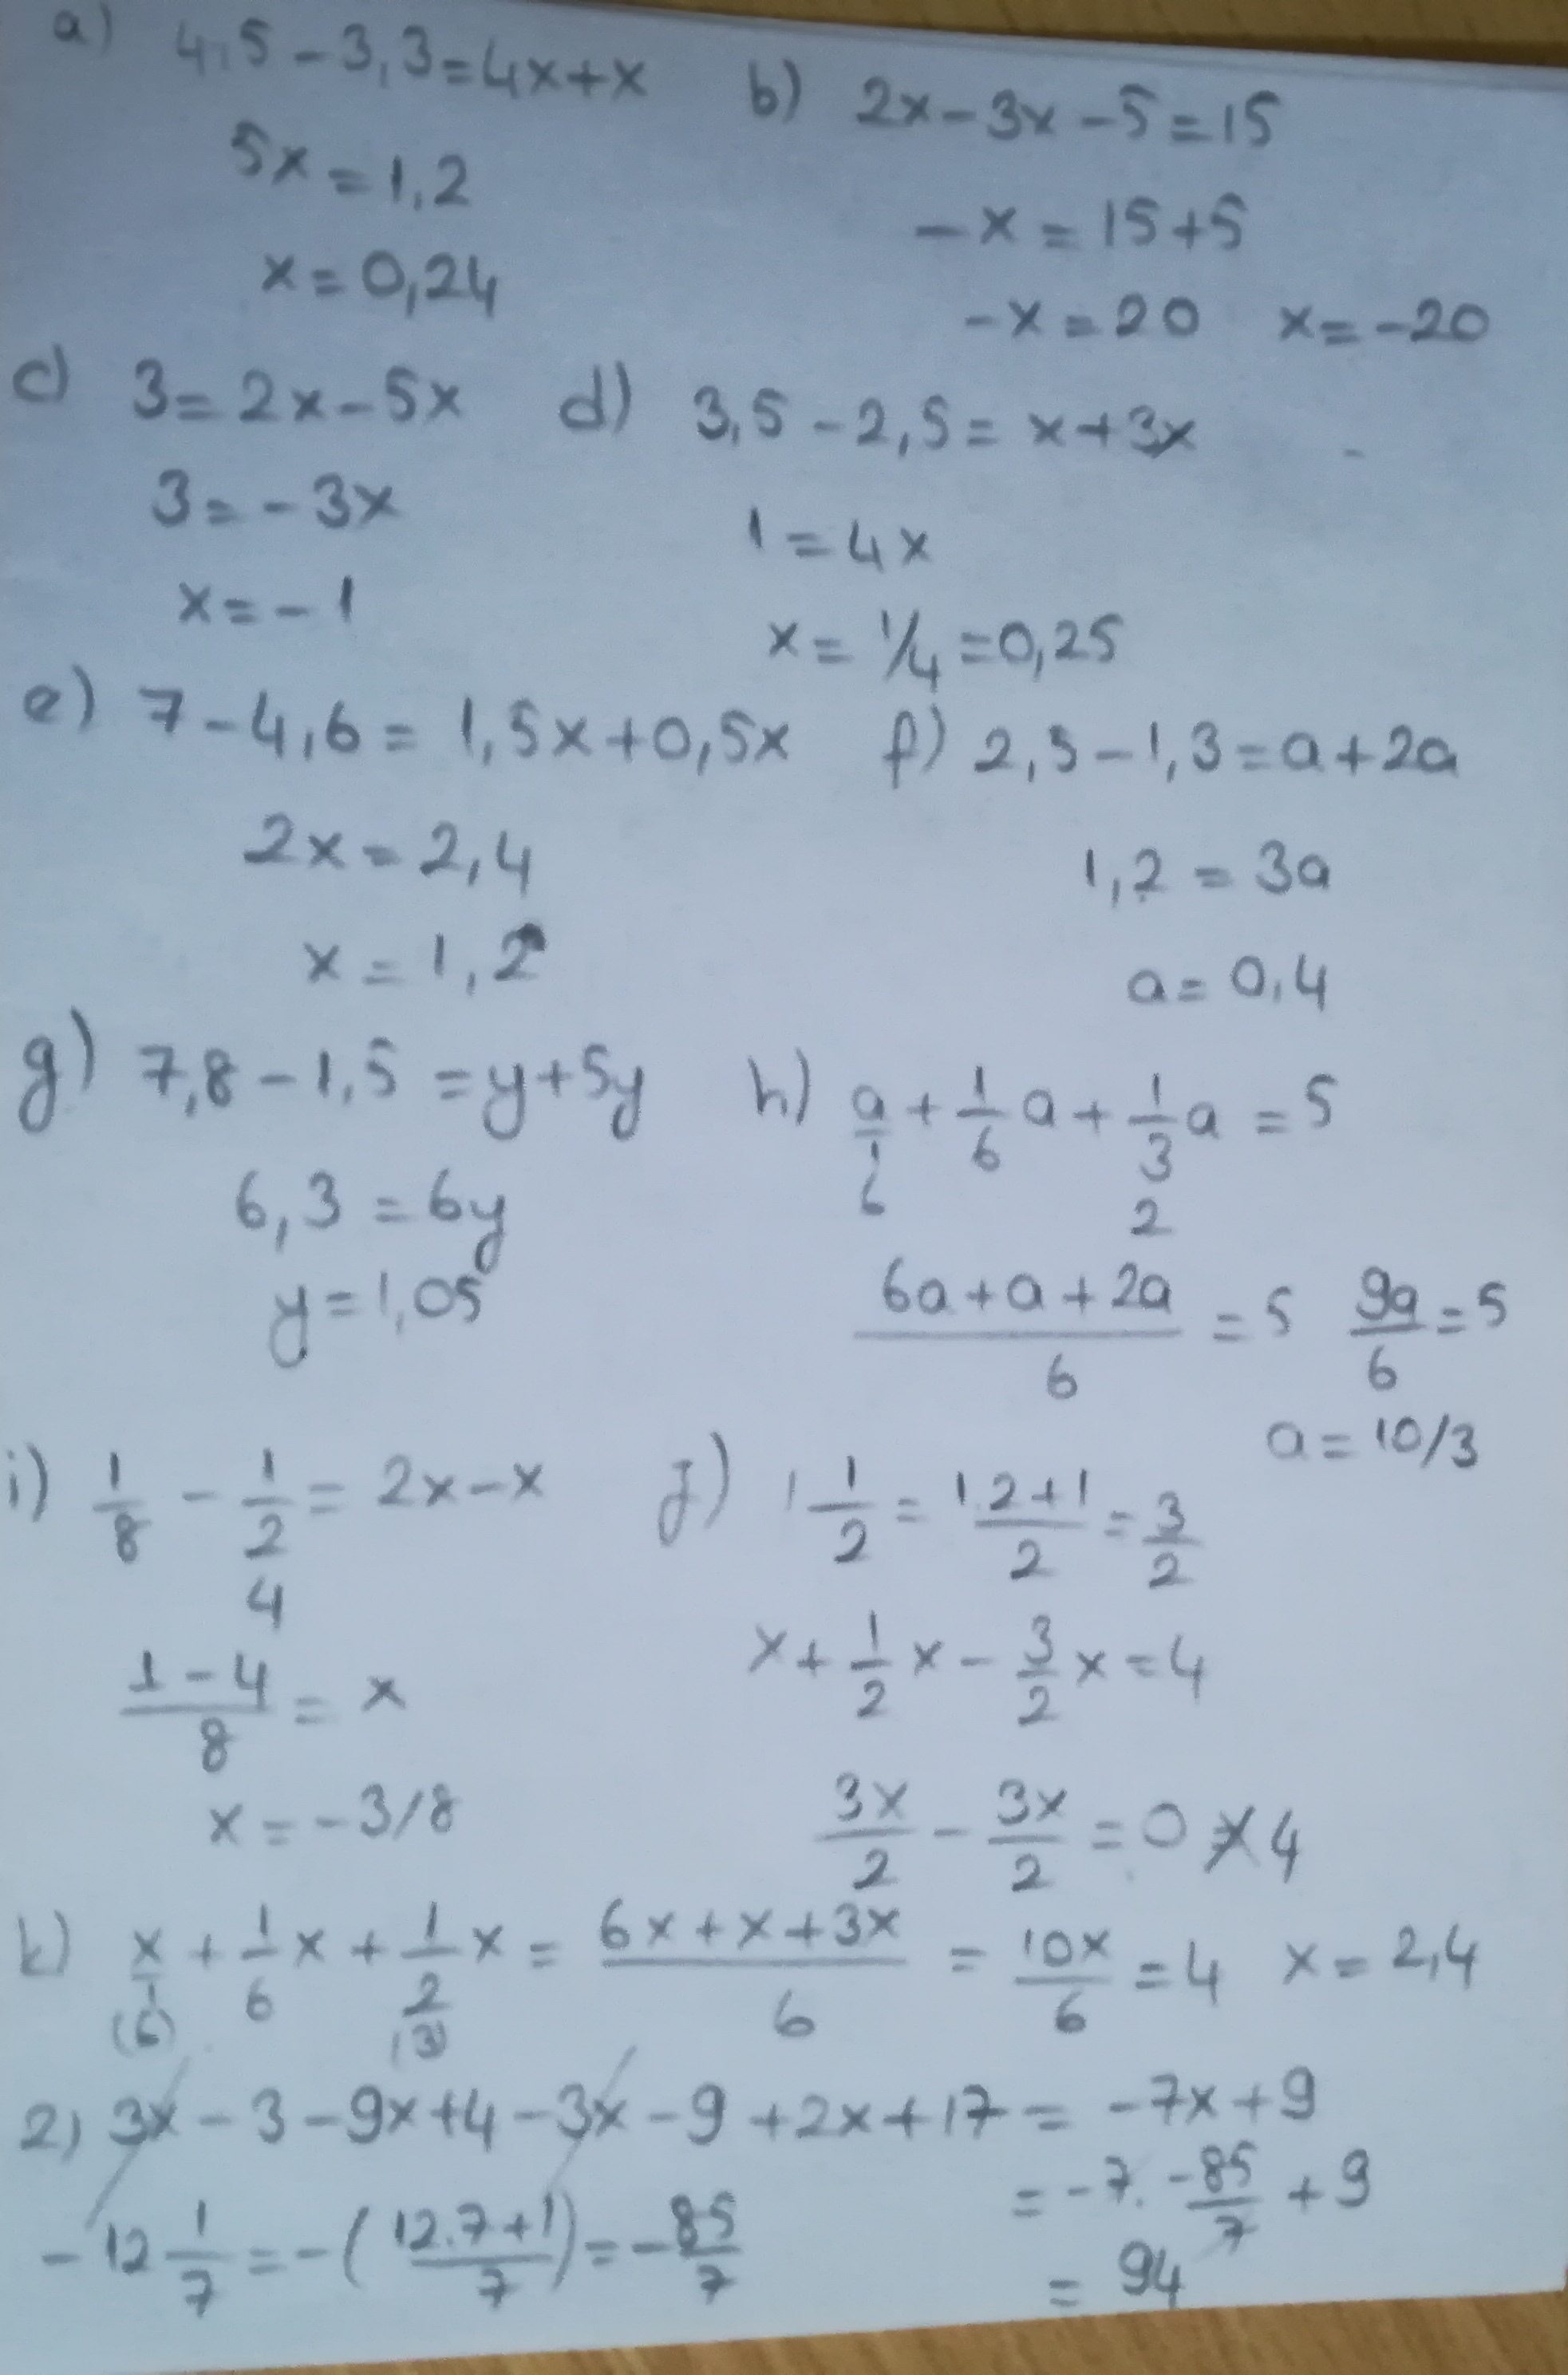 a) 4,5 - 3,3 = 4x + x
5x = 1,2
x = 0,24
b) 2x - 3x - 5 = 15
-x = 15 + 5
-x = 20 x = -20
c) 3 = 2x - 5x
3 = -3x
x = -1
d) 3,5 - 2,5 = x + 3x
1 = 4x
x = 1/4 = 0,25
e) 7 - 4,6 = 1,5x + 0,5x
2x = 2,4
x = 1,2
f) 2,5 - 1,3 = a + 2a
1,2 = 3a
a = 0,4
g) 7,8 - 1,5 = y + 5y
6,3 = 6y
y = 1,05
h) a/1 + 1/6 a + 1/3 a = 5
6 2
(6a + a + 2a)/6 = 5 9a/6 = 5
a = 10/3
i) 1/8 - 1/2 = 2x - x
4
(1 - 4)/8 = x
x = -3/8
j) 1 1/2 = (1.2 + 1)/2 = 3/2
x + 1/2 x - 3/2 x = 4
3x/2 - 3x/2 = 0 ≠ 4
k) x/1 + 1/6 x + 1/2 x = (6x + x + 3x)/6 = 10x/6 = 4 x = 2,4
(6) (3)
2) 3x - 3 - 9x + 4 - 3x - 9 + 2x + 17 = -7x + 9
-12 1/7 = -((12.7 + 1)/7) = -85/7
= -7. -85/7 + 9
= 94